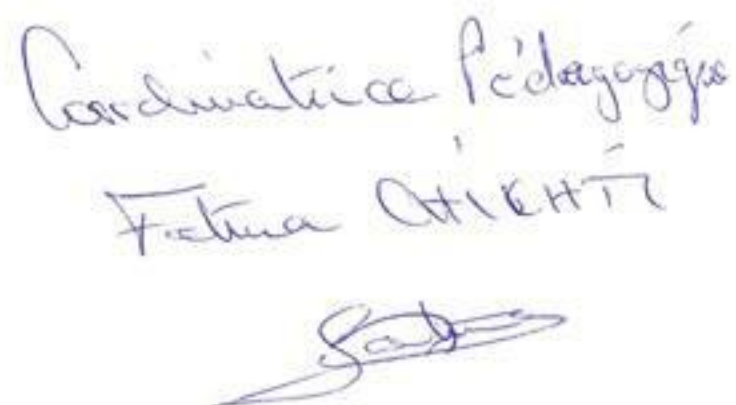 Coordinatrice Pédagogique
Fatima CHIKHTI